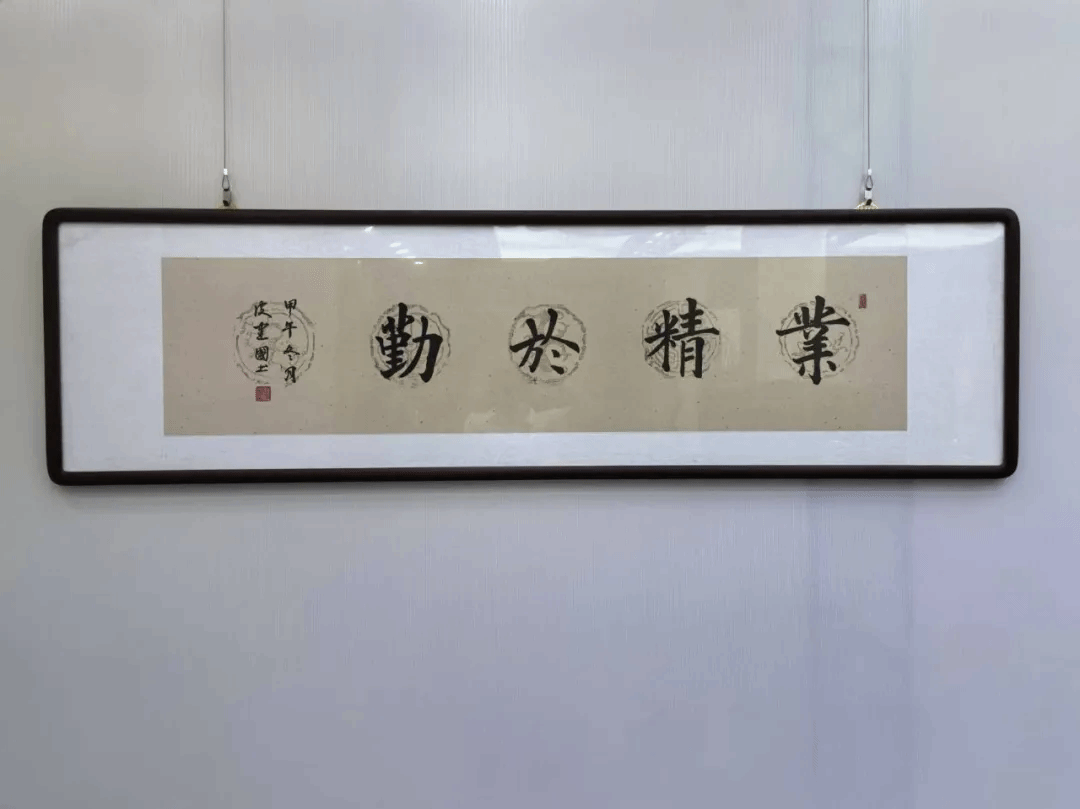 業精於勤
甲午冬月
建國书